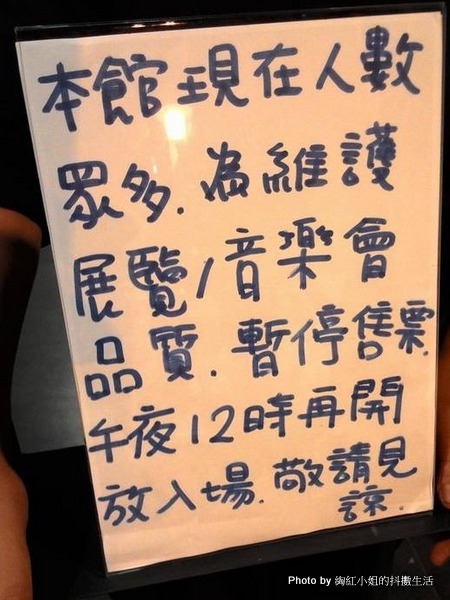 本館現在人數
眾多.為維護
展覽/音樂會
品質.暫停售票.
午夜12時再開
放入場.敬請見
諒.
Photo by 綯紅小姐的抖擻生活